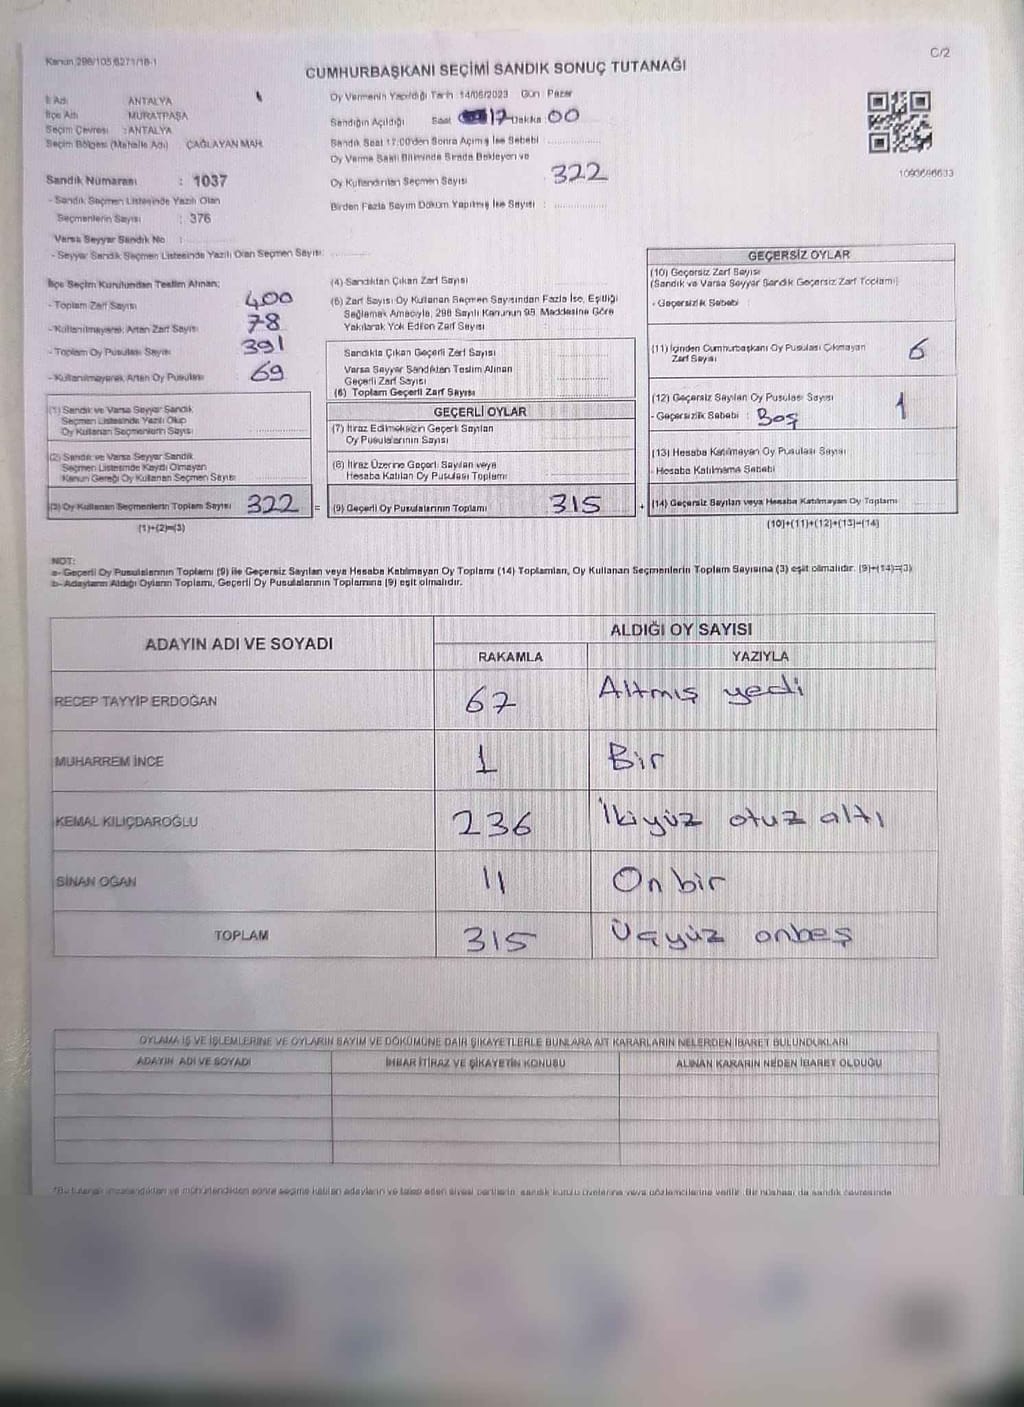 Kanun 298/105,6271/18-1
C/2
CUMHURBAŞKANI SEÇİMİ SANDIK SONUÇ TUTANAĞI
İl Adı ANTALYA
İlçe Adı MURATPAŞA
Seçim Çevresi : ANTALYA
Seçim Bölgesi (Mahalle Adı) ÇAĞLAYAN MAH.
Sandık Numarası : 1037
- Sandık Seçmen Listesinde Yazılı Olan
Seçmenlerin Sayısı : 376
Varsa Seyyar Sandık No :
- Seyyar Sandık Seçmen Listesinde Yazılı Olan Seçmen Sayısı:
Oy Vermenin Yapıldığı Tarih : 14/05/2023 Gün : Pazar
Sandığın Açıldığı Saat 17 Dakika 00
Sandık Saat 17:00'den Sonra Açılmış İse Sebebi
Oy Verme Saati Bitiminde Sırada Bekleyen ve
Oy Kullandırılan Seçmen Sayısı 322
Birden Fazla Sayım Döküm Yapılmış İse Sayısı :
1093696633
İlçe Seçim Kurulundan Teslim Alınan;
- Toplam Zarf Sayısı 400
- Kullanılmayarak Artan Zarf Sayısı 78
- Toplam Oy Pusulası Sayısı 391
- Kullanılmayarak Artan Oy Pusulası 69
(1) Sandık ve Varsa Seyyar Sandık
Seçmen Listesinde Yazılı Olup
Oy Kullanan Seçmenlerin Sayısı
(2) Sandık ve Varsa Seyyar Sandık
Seçmen Listesinde Kaydı Olmayan
Kanun Gereği Oy Kullanan Seçmen Sayısı
(3) Oy Kullanan Seçmenlerin Toplam Sayısı 322 =
(1)+(2)=(3)
(4) Sandıktan Çıkan Zarf Sayısı
(5) Zarf Sayısı Oy Kullanan Seçmen Sayısından Fazla İse, Eşitliği
Sağlamak Amacıyla, 298 Sayılı Kanunun 98. Maddesine Göre
Yakılarak Yok Edilen Zarf Sayısı
Sandıkta Çıkan Geçerli Zarf Sayısı
Varsa Seyyar Sandıktan Teslim Alınan
Geçerli Zarf Sayısı
(6) Toplam Geçerli Zarf Sayısı
GEÇERLİ OYLAR
(7) İtiraz Edilmeksizin Geçerli Sayılan
Oy Pusulalarının Sayısı
(8) İtiraz Üzerine Geçerli Sayılan veya
Hesaba Katılan Oy Pusulası Toplamı
(9) Geçerli Oy Pusulalarının Toplamı 315 +
GEÇERSİZ OYLAR
(10) Geçersiz Zarf Sayısı
(Sandık ve Varsa Seyyar Sandık Geçersiz Zarf Toplamı)
- Geçersizlik Sebebi :
(11) İçinden Cumhurbaşkanı Oy Pusulası Çıkmayan
Zarf Sayısı 6
(12) Geçersiz Sayılan Oy Pusulası Sayısı 1
- Geçersizlik Sebebi : Boş
(13) Hesaba Katılmayan Oy Pusulası Sayısı
- Hesaba Katılmama Sebebi
(14) Geçersiz Sayılan veya Hesaba Katılmayan Oy Toplamı
(10)+(11)+(12)+(13)=(14)
NOT:
a- Geçerli Oy Pusulalarının Toplamı (9) ile Geçersiz Sayılan veya Hesaba Katılmayan Oy Toplamı (14) Toplamları, Oy Kullanan Seçmenlerin Toplam Sayısına (3) eşit olmalıdır. (9)+(14)=(3)
b- Adayların Aldığı Oyların Toplamı, Geçerli Oy Pusulalarının Toplamına (9) eşit olmalıdır.
ADAYIN ADI VE SOYADI
ALDIĞI OY SAYISI
RAKAMLA YAZIYLA
RECEP TAYYİP ERDOĞAN 67 Altmış yedi
MUHARREM İNCE 1 Bir
KEMAL KILIÇDAROĞLU 236 İkiyüz otuz altı
SİNAN OĞAN 11 On bir
TOPLAM 315 Üçyüz onbeş
OYLAMA İŞ VE İŞLEMLERİNE VE OYLARIN SAYIM VE DÖKÜMÜNE DAİR ŞİKAYETLERLE BUNLARA AİT KARARLARIN NELERDEN İBARET BULUNDUKLARI
ADAYIN ADI VE SOYADI İHBAR İTİRAZ VE ŞİKAYETİN KONUSU ALINAN KARARIN NEDEN İBARET OLDUĞU
*Bu tutanak imzalandıktan ve mühürlendikten sonra seçime katılan adayların ve talep eden siyasi partilerin, sandık kurulu üyelerine veya gözlemcilerine verilir. Bir nüshası da sandık çevresinde